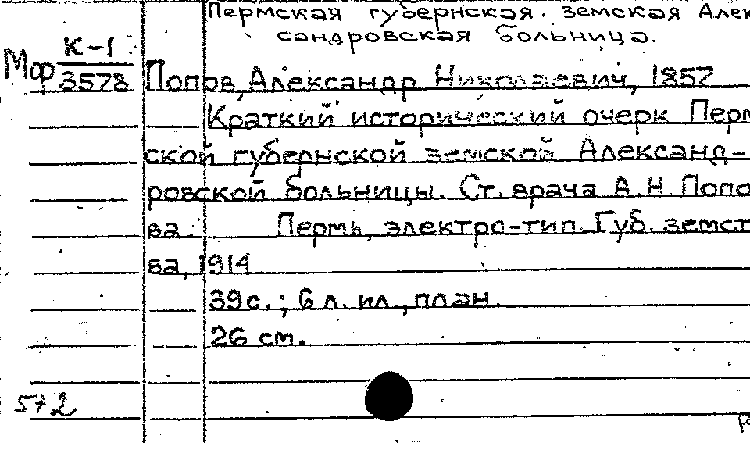 Пермская губернская земская Алек
сандровская больница.
Мор К-1
3578
Попов, Александр Николаевич, 1857
Краткий исторический очерк Перм
ской губернской земской Александ-
ровской больницы. Ст. врача А.Н. Попо
ва. Пермь, электро-тип. Губ. земст
ва, 1914
39 с.; 6 л. ил., план.
26 см.
572